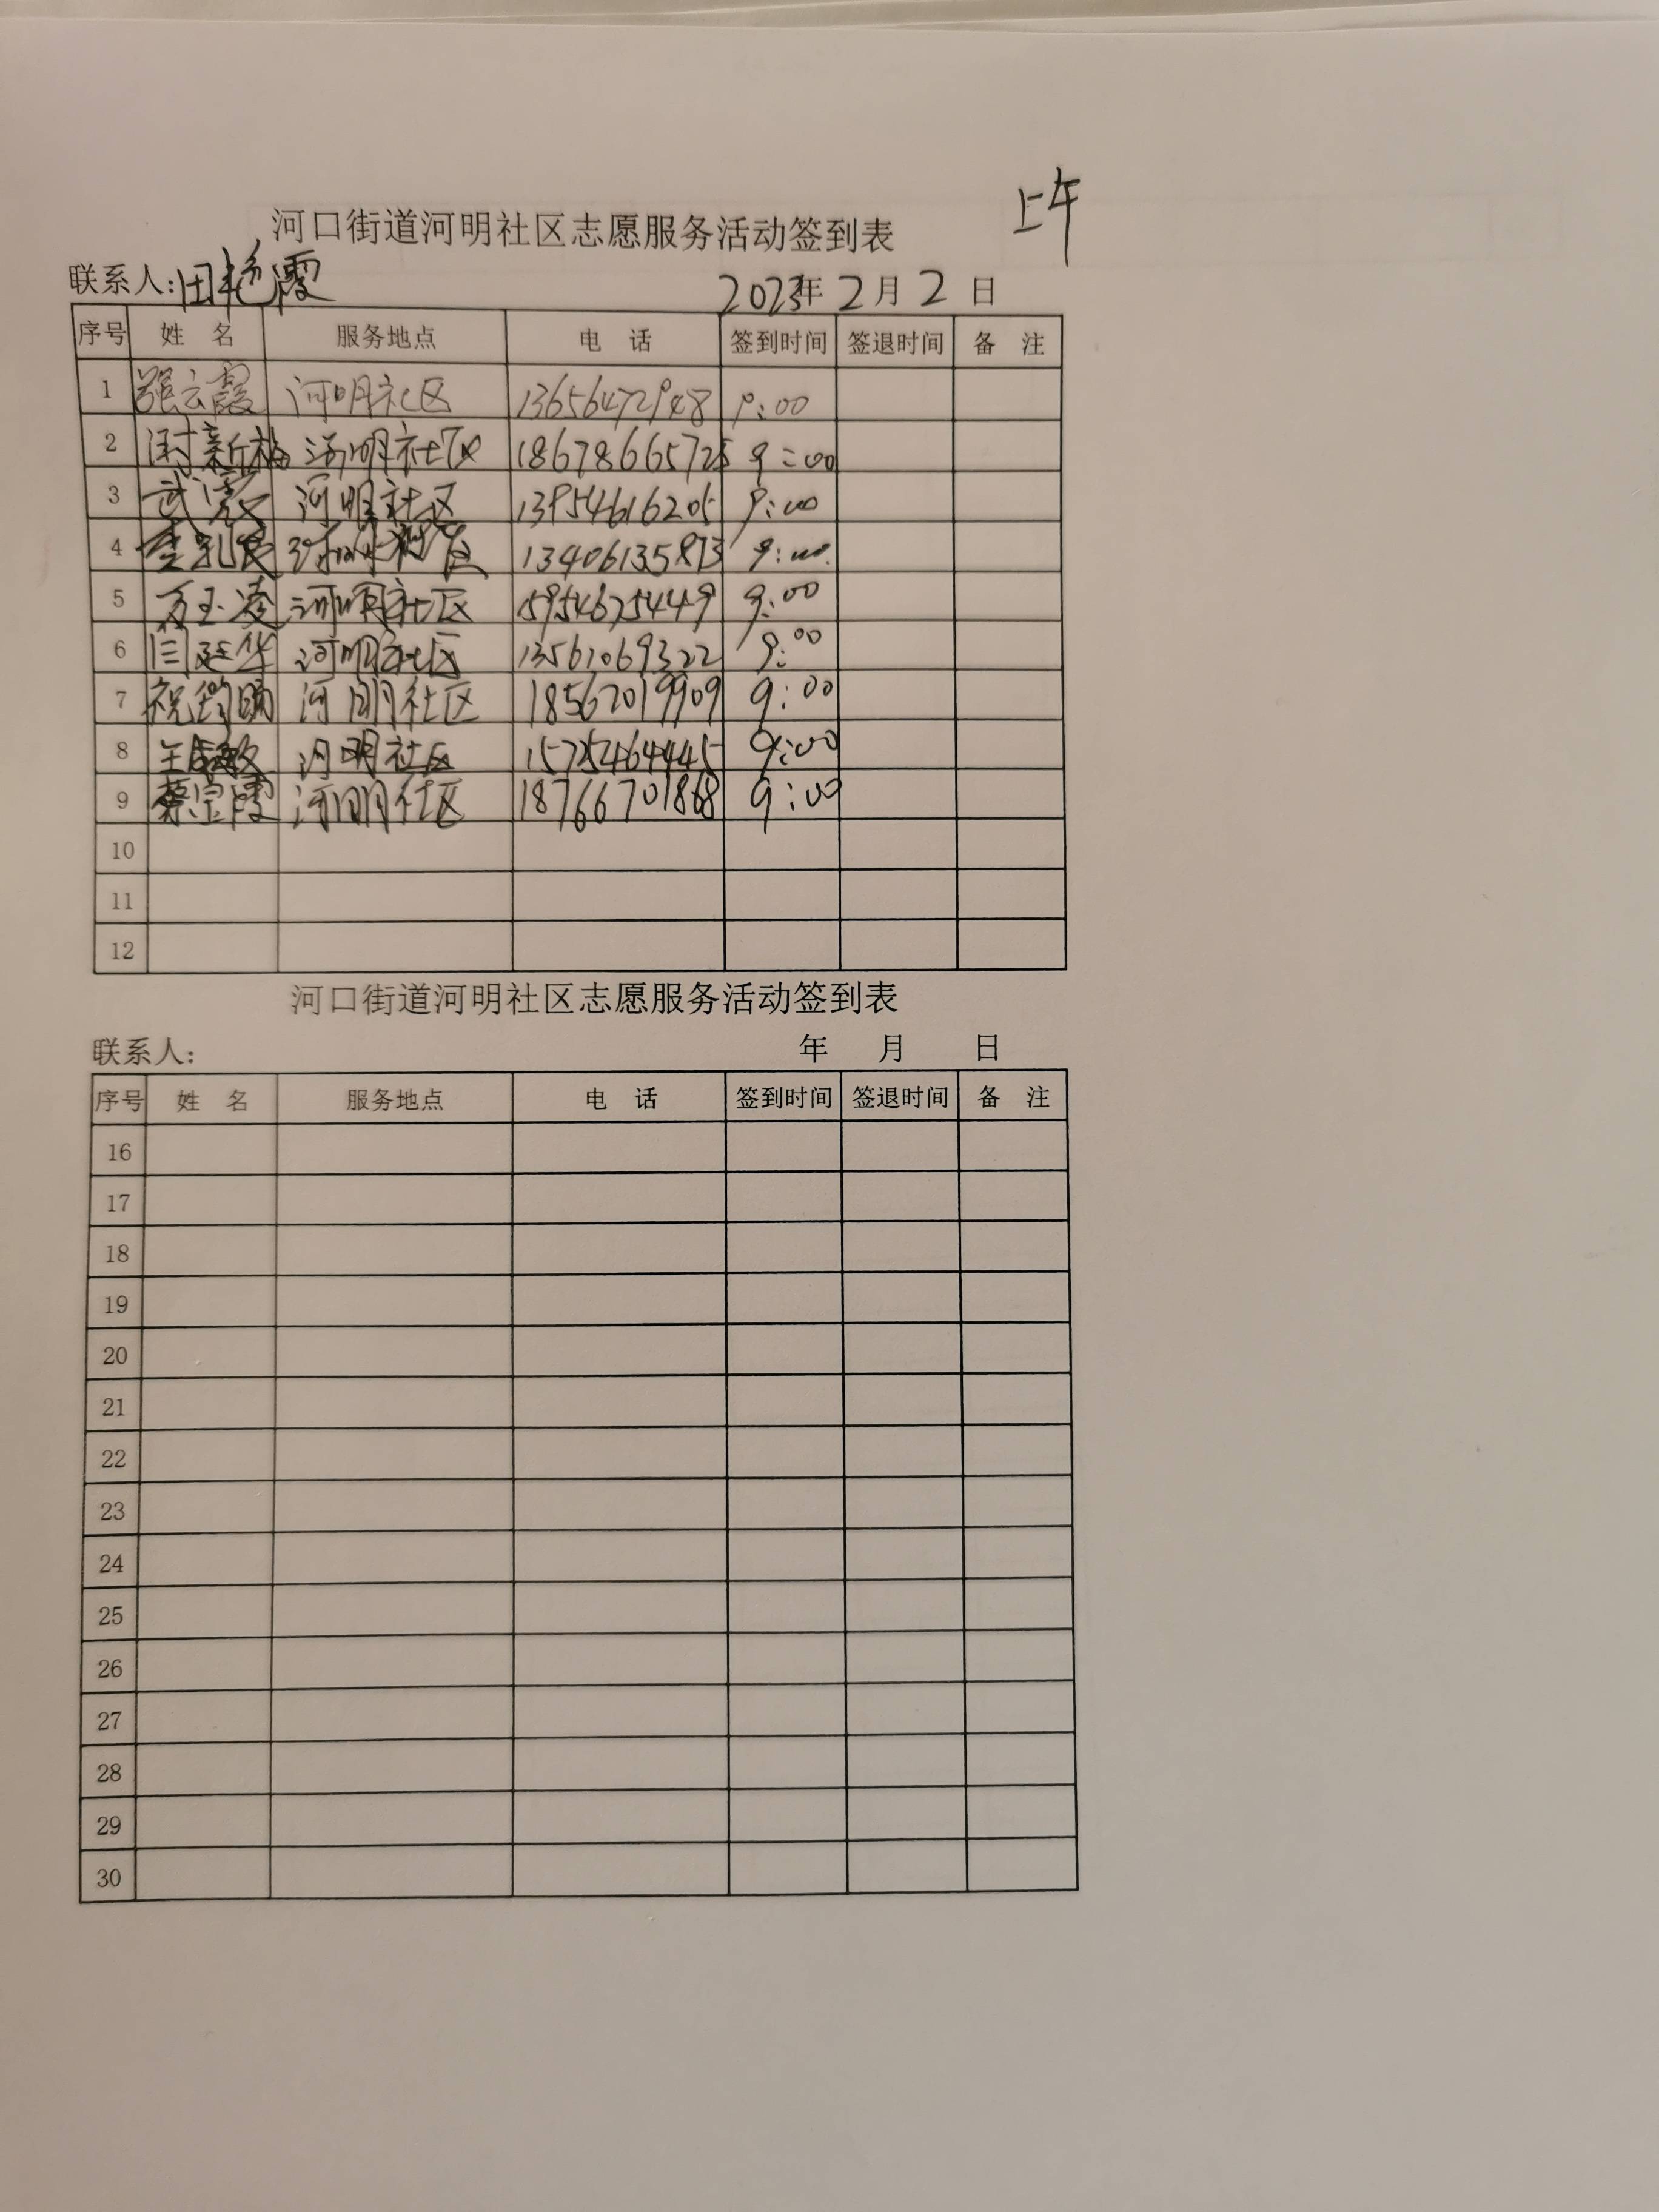 上午
河口街道河明社区志愿服务活动签到表
联系人:田艳霞 2023年2月2日
序号 姓 名 服务地点 电 话 签到时间 签退时间 备 注
1 张云霞 河明社区 13656472948 9:00
2 新梅 河明社区 18678665725 9:00
3 武霞 河明社区 13954616205 9:00
4 河明社区 13406135873 9:00
5 万玉凌 河明社区 15954675449 9:00
6 闫廷华 河明社区 13561069322 9:00
7 祝 河明社区 18562019909 9:00
8 王 敏 河明社区 15725464445 9:00
9 蔡宝霞 河明社区 18766701868 9:00
10
11
12
河口街道河明社区志愿服务活动签到表
联系人: 年 月 日
序号 姓 名 服务地点 电 话 签到时间 签退时间 备 注
16
17
18
19
20
21
22
23
24
25
26
27
28
29
30